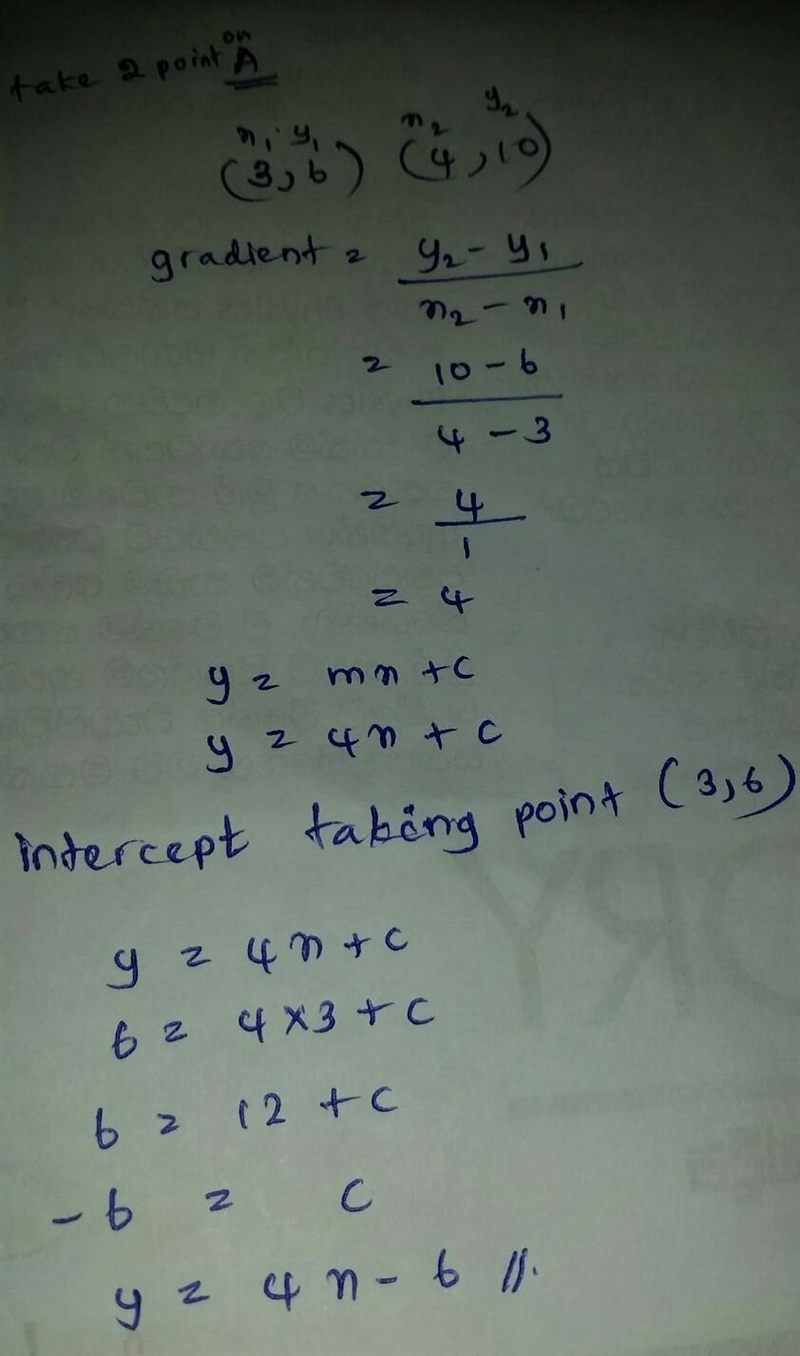 take 2 point on A
x₁ y₁ x₂ y₂
(3,6) (4,10)
gradient = y₂ - y₁
x₂ - x₁
= 10 - 6
4 - 3
= 4
1
= 4
y = mx + c
y = 4x + c
intercept taking point (3,6)
y = 4x + c
6 = 4×3 + c
6 = 12 + c
-6 = c
y = 4x - 6 //.